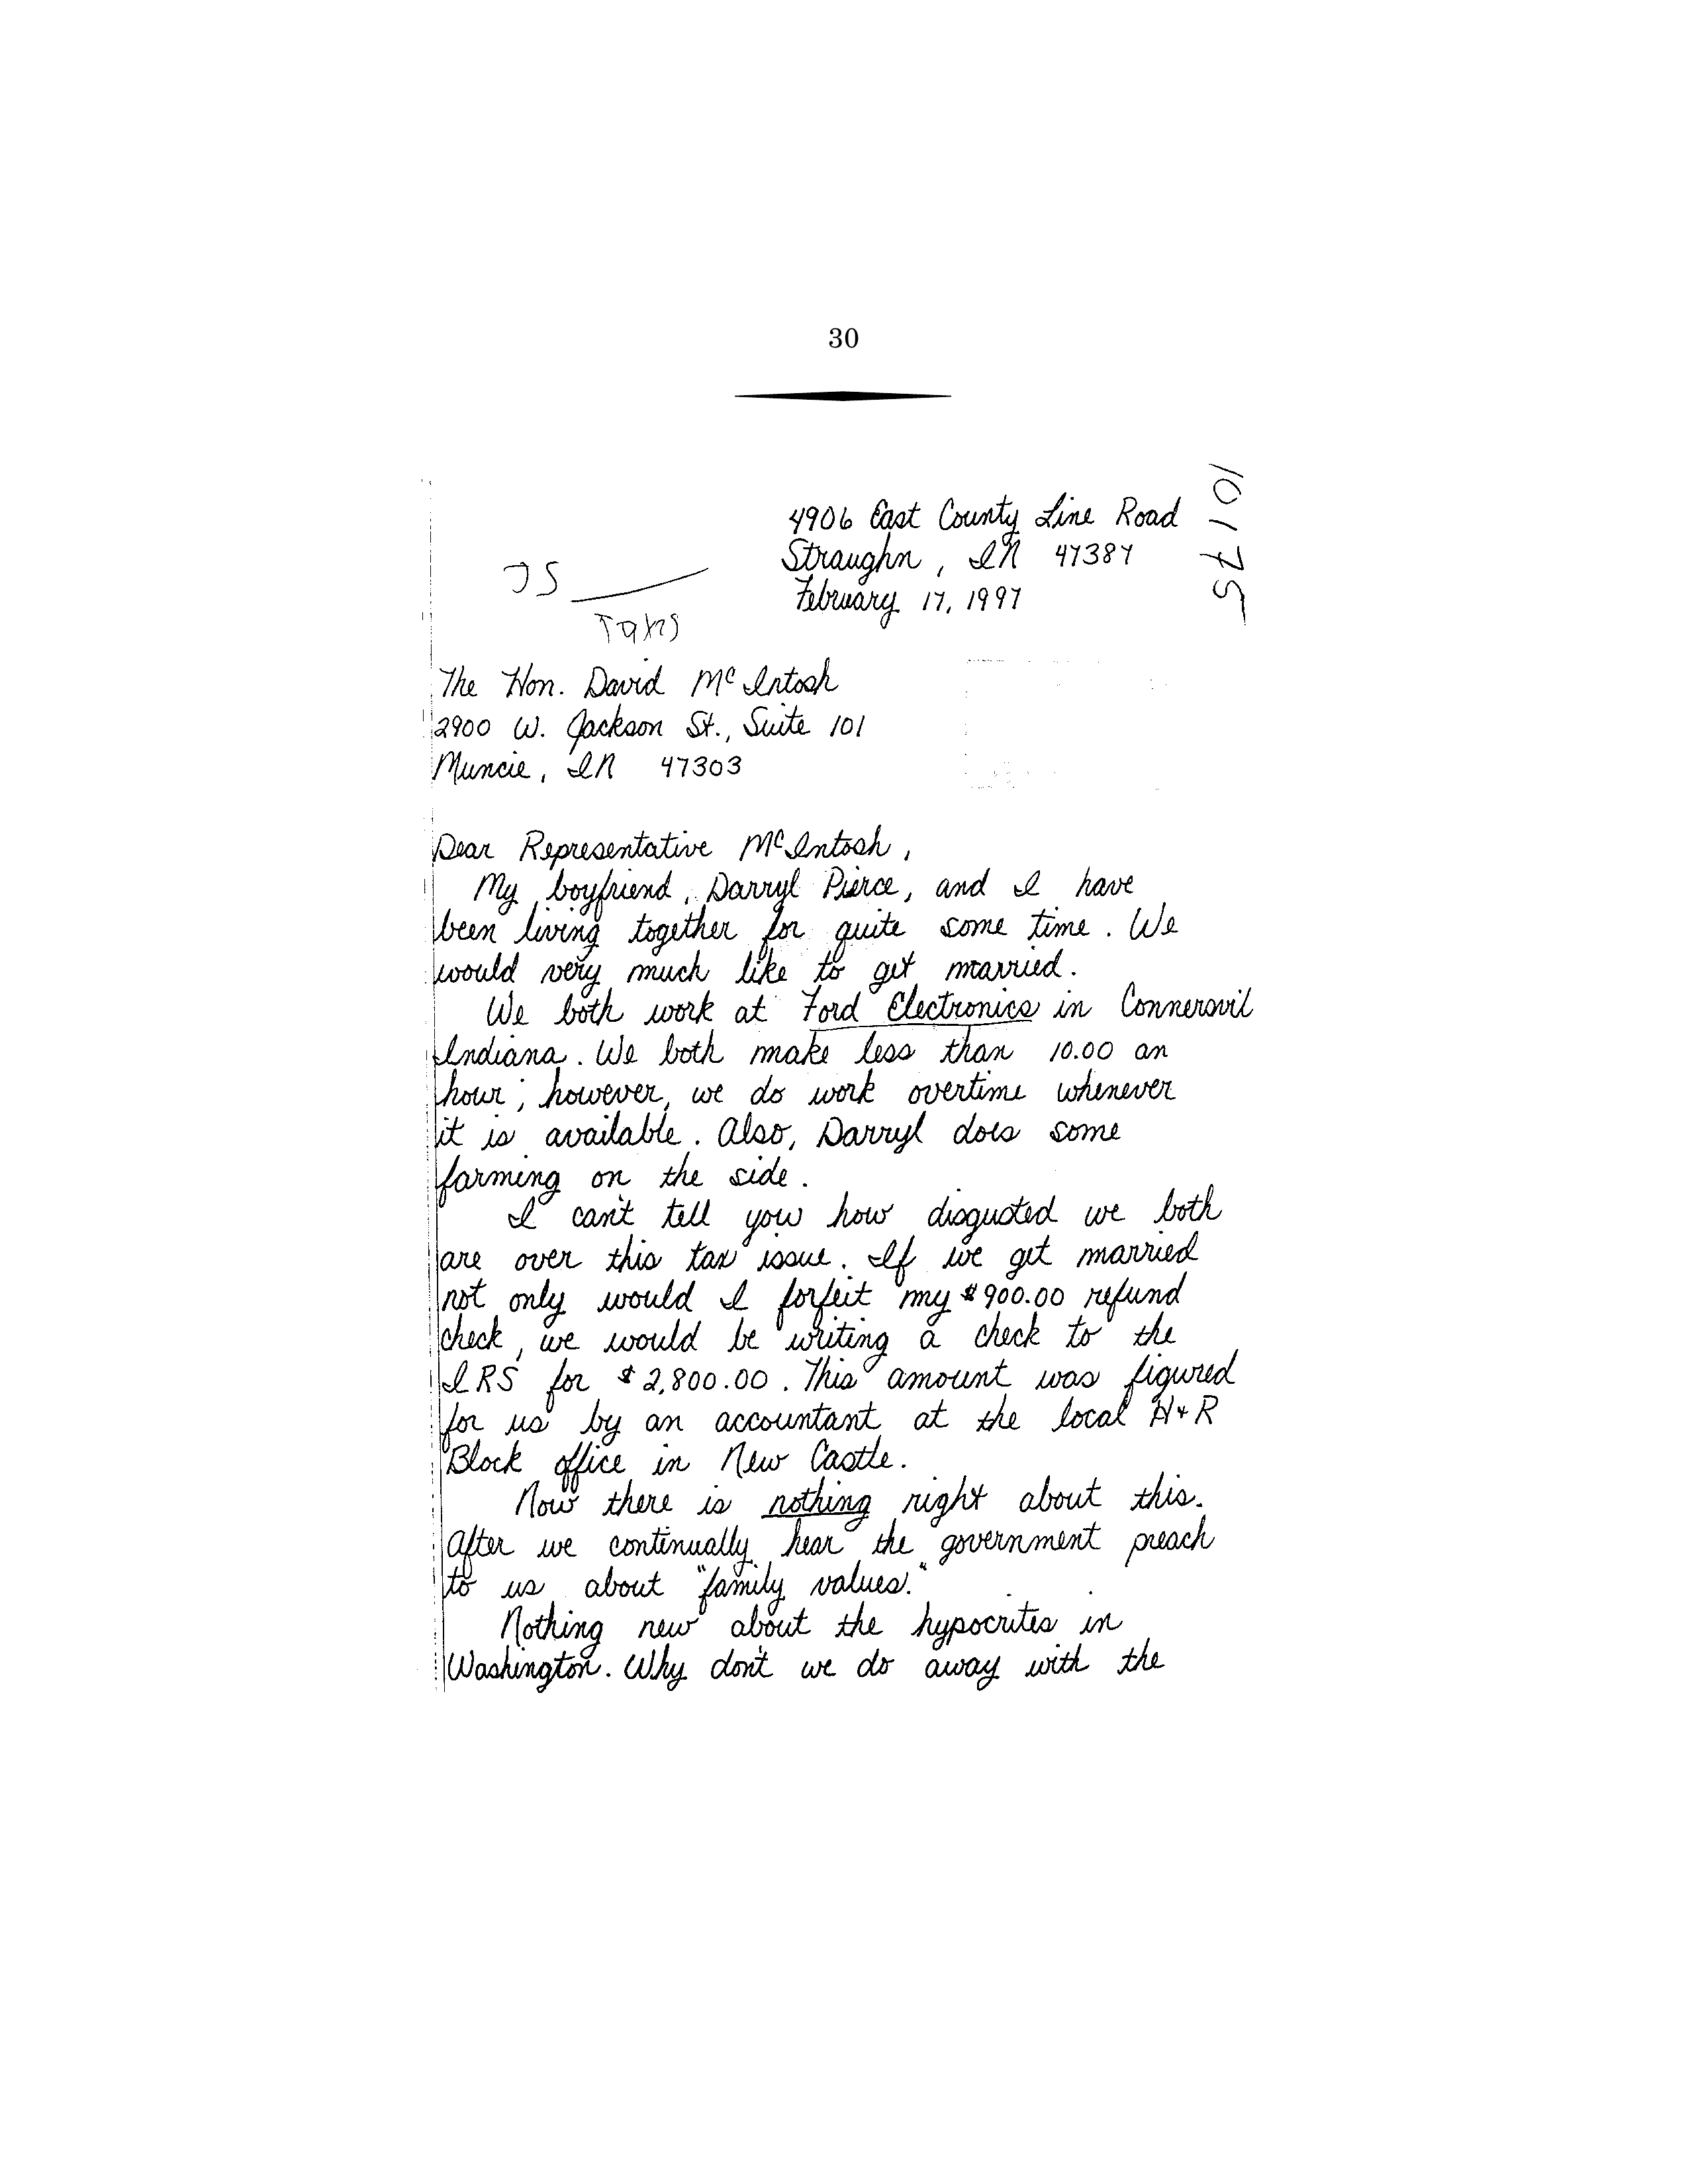 30
10175
4906 East County Line Road
Straughn, IN 47387
February 17, 1997
JS
The Hon. David McIntosh
2900 W. Jackson St., Suite 101
Muncie, IN 47303
Dear Representative McIntosh,
My boyfriend, Darryl Pierce, and I have
been living together for quite some time. We
would very much like to get married.
We both work at Ford Electronics in Connersvil
Indiana. We both make less than 10.00 an
hour; however, we do work overtime whenever
it is available. Also, Darryl does some
farming on the side.
I can't tell you how disgusted we both
are over this tax issue. If we get married
not only would I forfeit my $900.00 refund
check, we would be writing a check to the
IRS for $2,800.00. This amount was figured
for us by an accountant at the local H+R
Block office in New Castle.
Now there is nothing right about this.
After we continually hear the government preach
to us about "family values."
Nothing new about the hypocrites in
Washington. Why don't we do away with the